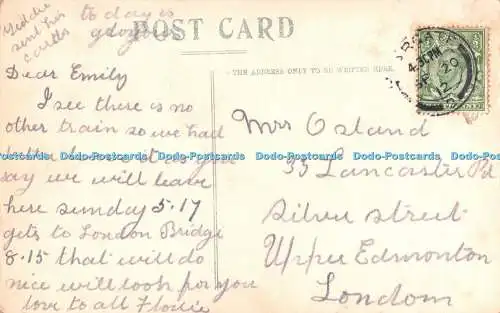 to day is
sent his
cards
POST CARD
THE ADDRESS ONLY TO BE WRITTEN HERE.
Dear Emily
I see there is no
other train so we had
say we will leave
here sunday 5.17
gets to London Bridge
8.15 that will do
nice will look for you
love to all Florrie
Mrs Osland
33 Lancaster Rd
Silver Street
Upper Edmonton
London
4.30 PM
20
12
Dodo-Postcards Dodo-Postcards Dodo-Postcards Dodo-Postcards Dodo-Postcards Dodo-Postcards